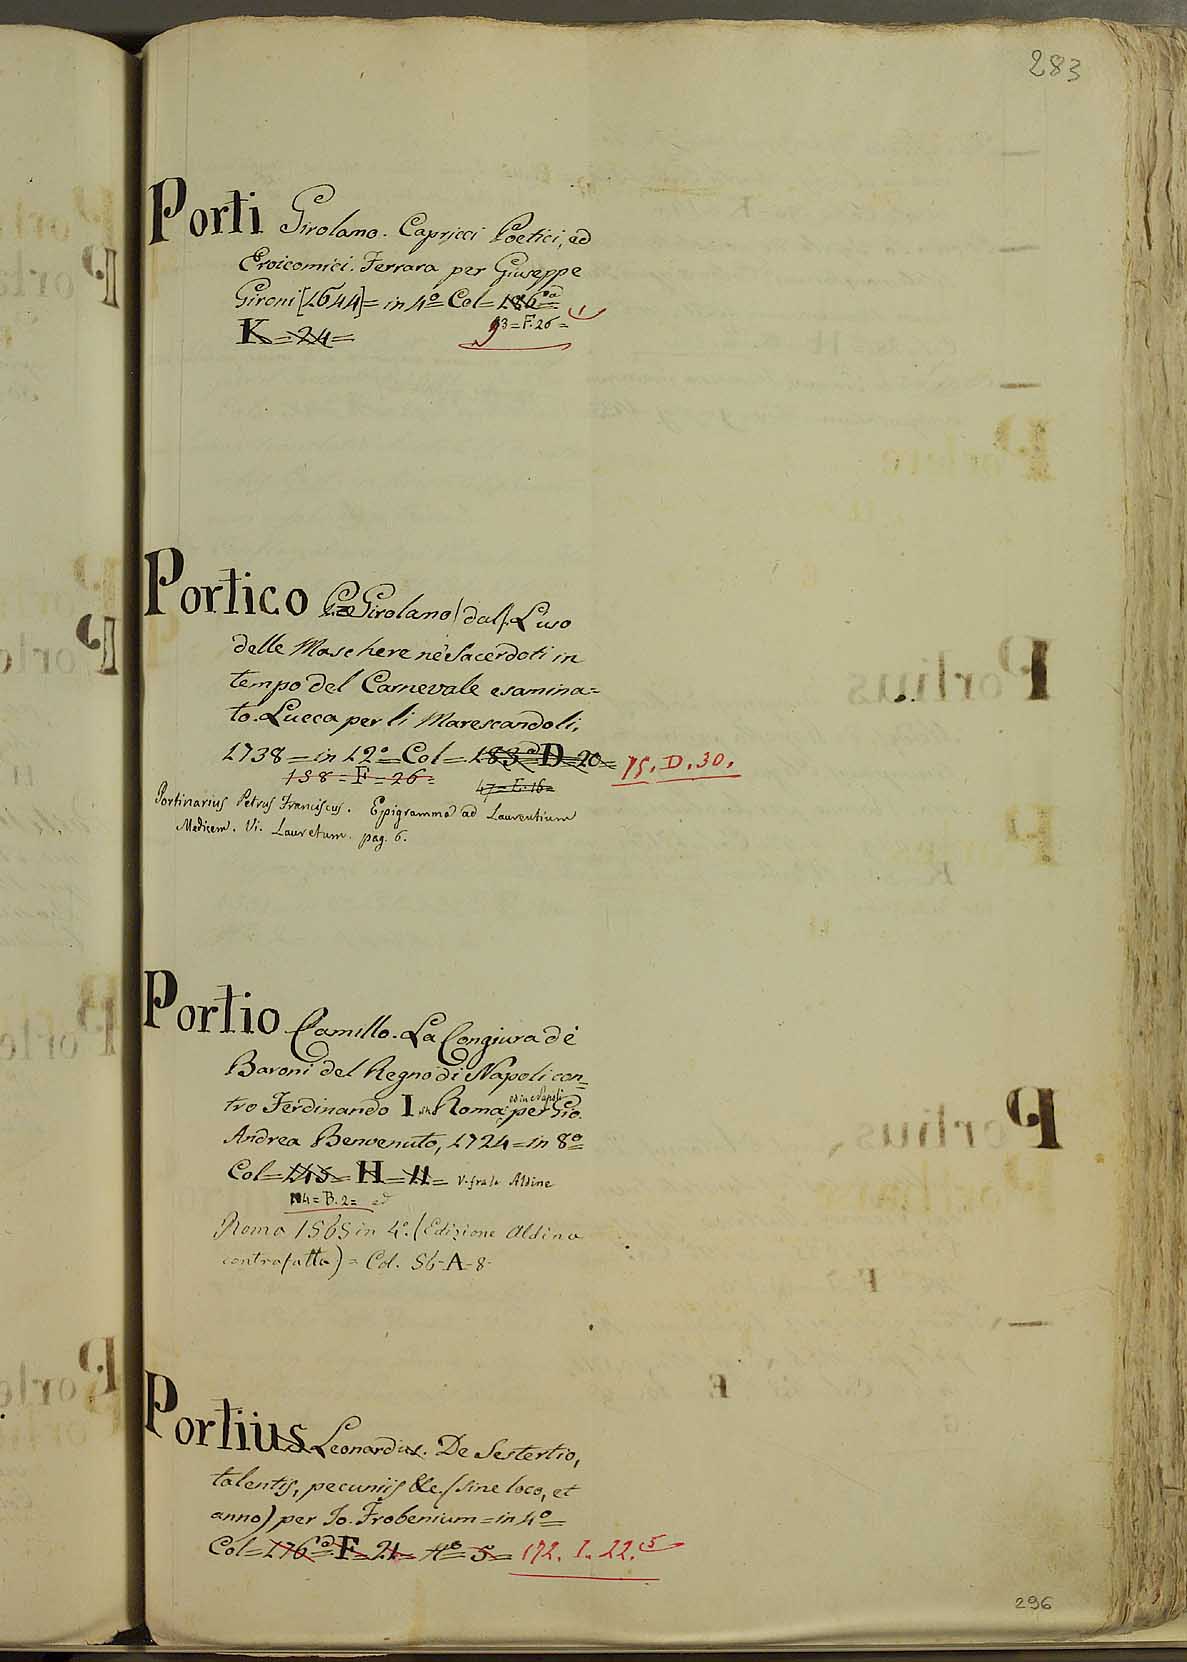 283
Porti Girolamo. Capricci Poetici, ed
Eroicomici. Ferrara per Giuseppe
Gironi [1644] = in 4º Col = 186
K = 24 =
93 = F. 26 =
Portico Girolamo (dal). L'uso
delle Maschere ne' Sacerdoti in
tempo del Carnevale esamina=
to. Lucca per li Marescandoli,
1738 = in 12º Col = 183 D = 20 = 75. D. 30.
158 = F = 26 =
47 = E. 16 =
Portinarius Petrus Franciscus. Epigramma ad Laurentium
Medicem. Vi. Lauretum. pag. 6.
Portio Camillo. La Congiura de'
Baroni del Regno di Napoli con=
tro Ferdinando I in Roma, ed in Napoli per Gio.
Andrea Benvenuto, 1724 = in 8º =
Col = 145 = H = 11 = V. fra le Aldine
104 = B. 2 = ed
Roma 1565 in 4º. (Edizione Aldina
contrafatta) = Col. 56-A-8-
Portius Leonardus. De Sestertio,
talentis, pecuniis &c. (sine loco, et
anno) per Jo. Frobenium = in 4º =
Col = 176 = F = 21 = Nº 5 = 172. I. 22. 5
296